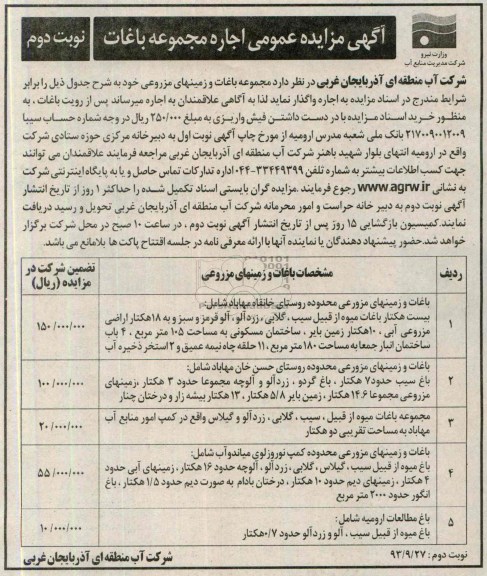 آگهی مزایده عمومی اجاره مجموعه باغات
نوبت دوم
وزارت نیرو
شرکت مدیریت منابع آب
شرکت آب منطقه ای آذربایجان غربی در نظر دارد مجموعه باغات و زمینهای مزروعی خود به شرح جدول ذیل را برابر
شرایط مندرج در اسناد مزایده به اجاره واگذار نماید لذا به آگاهی علاقمندان به اجاره میرساند پس از رویت باغات ، به
منظور خرید اسناد مزایده با در دست داشتن فیش واریزی به مبلغ ۲۵۰/۰۰۰ ریال در وجه شماره حساب سیبا
۲۱۷۰۰۹۰۱۲۰۰۹ بانک ملی شعبه مدرس ارومیه از مورخ چاپ آگهی نوبت اول به دبیرخانه مرکزی حوزه ستادی شرکت
واقع در ارومیه انتهای بلوار شهید باهنر شرکت آب منطقه ای آذربایجان غربی مراجعه فرمایند علاقمندان می توانند
جهت کسب اطلاعات بیشتر به شماره تلفن ۳۳۴۴۹۳۹۹-۰۴۴ اداره تدارکات تماس حاصل و یا به پایگاه اینترنتی شرکت
به نشانی www.agrw.ir رجوع فرمایند .مزایده گران بایستی اسناد تکمیل شده را حداکثر ۱۰ روز از تاریخ انتشار
آگهی نوبت دوم به دبیر خانه حراست و امور محرمانه شرکت آب منطقه ای آذربایجان غربی تحویل و رسید دریافت
نمایند.کمیسیون بازگشایی ۱۵ روز پس از تاریخ انتشار آگهی نوبت دوم ، در ساعت ۱۰ صبح در محل شرکت برگزار
خواهد شد.حضور پیشنهاد دهندگان یا نماینده آنها با ارائه معرفی نامه در جلسه افتتاح پاکت ها بلامانع می باشد.
ردیف
مشخصات باغات و زمینهای مزروعی
تضمین شرکت در
مزایده (ریال)
۱
باغات و زمینهای مزورعی محدوده روستای خانقاه مهاباد شامل:
بیست هکتار باغات میوه از قبیل سیب ، گلابی ، زردآلو ، آلو قرمز و سبز و به ۱۸هکتار اراضی
مزروعی آبی ، ۱۰هکتار زمین بایر ، ساختمان مسکونی به مساحت ۱۰۵ متر مربع ، ۴ باب
ساختمان انبار جمعا به مساحت ۱۸۰ متر مربع ، ۱۱ حلقه چاه نیمه عمیق و ۲ استخر ذخیره آب
۱۵۰/۰۰۰/۰۰۰
۲
باغات و زمینهای مزورعی محدوده روستای حسن خان مهاباد شامل:
باغ سیب حدود۷ هکتار ، باغ گردو ، زردآلو و آلوچه مجموعا حدود ۳ هکتار ،زمینهای
مزروعی مجموعا ۱۴.۶ هکتار ، زمین بایر ۵/۸ هکتار ، ۱۳ هکتار بیشه زار و درختان چنار
۱۰۰/۰۰۰/۰۰۰
۳
مجموعه باغات میوه از قبیل ، سیب ، گلابی ، زردآلو و گیلاس واقع در کمپ امور منابع آب
مهاباد به مساحت تقریبی دو هکتار
۲۰/۰۰۰/۰۰۰
۴
باغات و زمینهای مزورعی محدوده کمپ نوروزلوی میاندوآب شامل:
باغ میوه از قبیل سیب ، گیلاس ، گلابی ، زردآلو ، آلوچه حدود ۱۶ هکتار ، زمینهای آبی حدود
۴ هکتار ، زمینهای دیم حدود ۱۰ هکتار ، درختان بادام به صورت دیم حدود ۱/۵ هکتار ، باغ
انگور حدود ۲۰۰۰ متر مربع
۵۵/۰۰۰/۰۰۰
۵
باغ مطالعات ارومیه شامل:
باغ میوه از قبیل سیب ، آلو و زردآلو حدود ۰/۷هکتار
۱۰/۰۰۰/۰۰۰
نوبت دوم : ۹۳/۹/۲۷
شرکت آب منطقه ای آذربایجان غربی